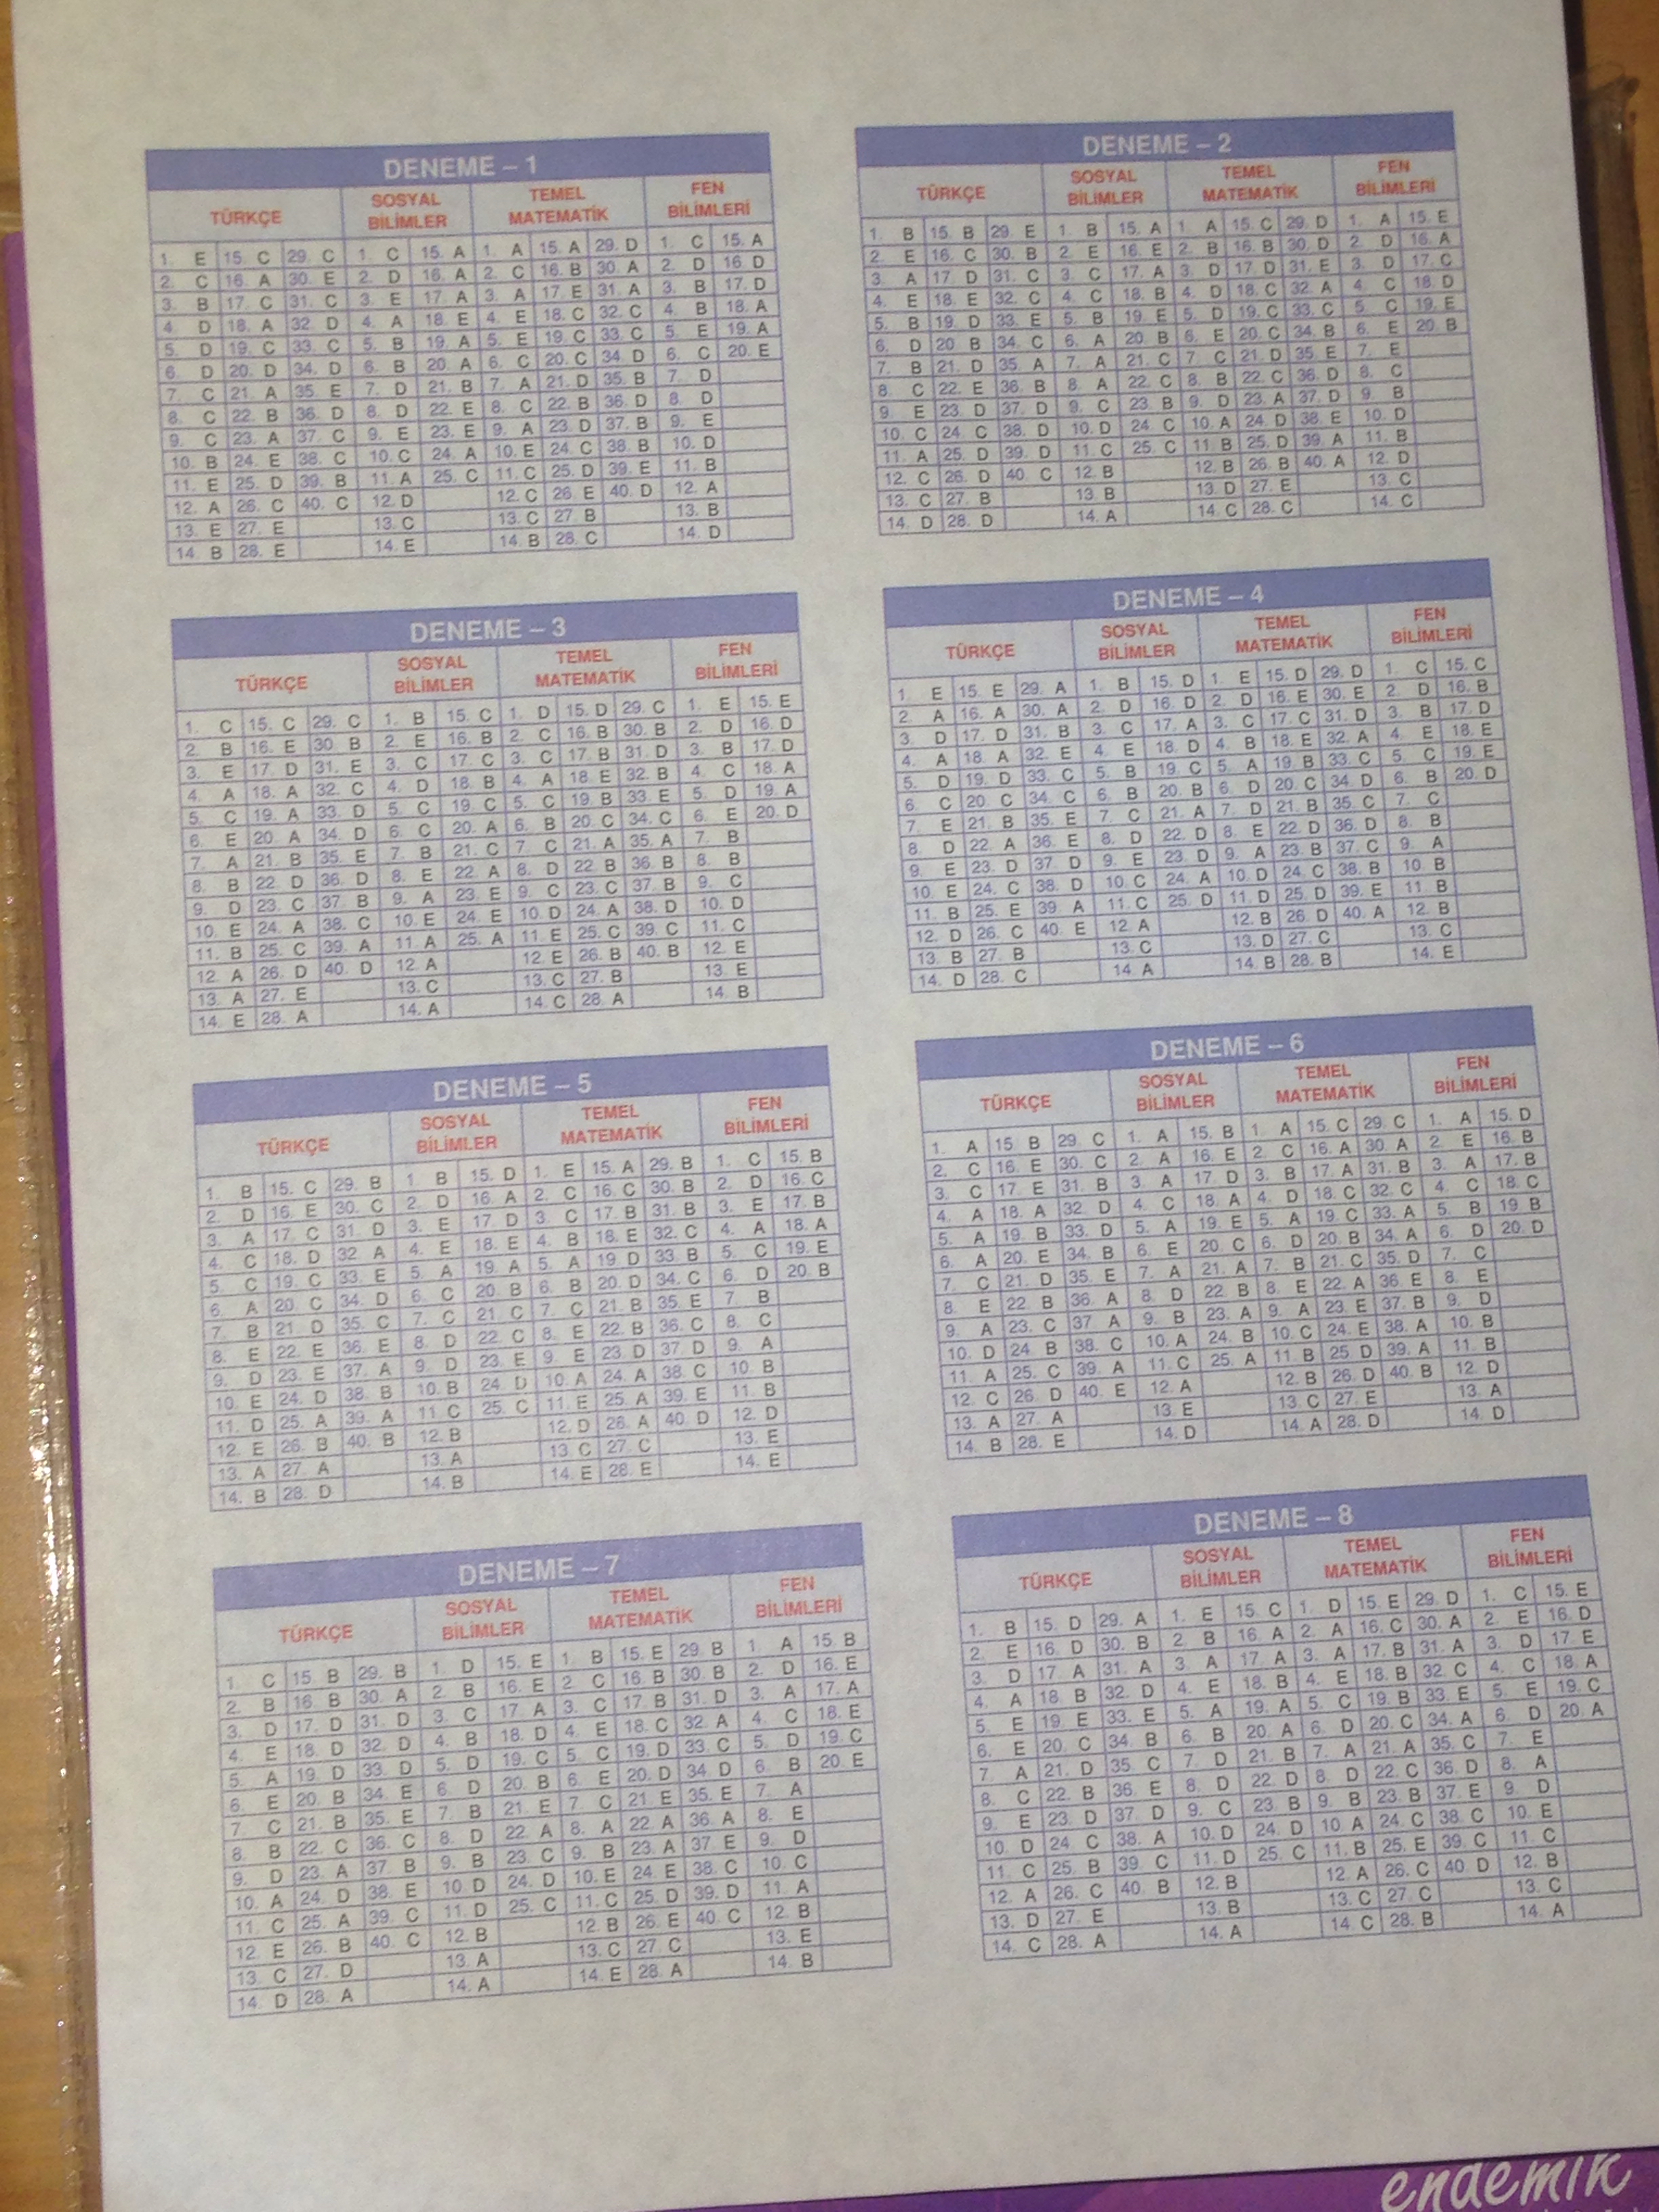 DENEME – 1
TÜRKÇE SOSYAL BİLİMLER TEMEL MATEMATİK FEN BİLİMLERİ
1. E 15. C 29. C 1. C 15. A 1. A 15. A 29. D 1. C 15. A
2. C 16. A 30. E 2. D 16. A 2. C 16. B 30. A 2. D 16. D
3. B 17. C 31. C 3. E 17. A 3. A 17. E 31. A 3. B 17. D
4. D 18. A 32. D 4. A 18. E 4. E 18. C 32. C 4. B 18. A
5. D 19. C 33. C 5. B 19. A 5. E 19. C 33. C 5. E 19. A
6. D 20. D 34. D 6. B 20. A 6. C 20. C 34. D 6. C 20. E
7. C 21. A 35. E 7. D 21. B 7. A 21. D 35. B 7. D
8. C 22. B 36. D 8. D 22. E 8. C 22. B 36. D 8. D
9. C 23. A 37. C 9. E 23. E 9. A 23. D 37. B 9. E
10. B 24. E 38. C 10. C 24. A 10. E 24. C 38. B 10. D
11. E 25. D 39. B 11. A 25. C 11. C 25. D 39. E 11. B
12. A 26. C 40. C 12. D 12. C 26. E 40. D 12. A
13. E 27. E 13. C 13. C 27. B 13. B
14. B 28. E 14. E 14. B 28. C 14. D
DENEME – 2
TÜRKÇE SOSYAL BİLİMLER TEMEL MATEMATİK FEN BİLİMLERİ
1. B 15. B 29. E 1. B 15. A 1. A 15. C 29. D 1. A 15. E
2. E 16. C 30. B 2. E 16. E 2. B 16. B 30. D 2. D 16. A
3. A 17. D 31. C 3. C 17. A 3. D 17. D 31. E 3. D 17. C
4. E 18. E 32. C 4. C 18. B 4. D 18. C 32. A 4. C 18. D
5. B 19. D 33. E 5. B 19. E 5. D 19. C 33. C 5. C 19. E
6. D 20. B 34. C 6. A 20. B 6. E 20. C 34. B 6. E 20. B
7. B 21. D 35. A 7. A 21. C 7. C 21. D 35. E 7. E
8. C 22. E 36. B 8. A 22. C 8. B 22. C 36. D 8. C
9. E 23. D 37. D 9. C 23. B 9. D 23. A 37. D 9. B
10. C 24. C 38. D 10. D 24. C 10. A 24. D 38. E 10. D
11. A 25. D 39. D 11. C 25. C 11. B 25. D 39. A 11. B
12. C 26. D 40. C 12. B 12. B 26. B 40. A 12. D
13. C 27. B 13. B 13. D 27. E 13. C
14. D 28. D 14. A 14. C 28. C 14. C
DENEME – 3
TÜRKÇE SOSYAL BİLİMLER TEMEL MATEMATİK FEN BİLİMLERİ
1. C 15. C 29. C 1. B 15. C 1. D 15. D 29. C 1. E 15. E
2. B 16. E 30. B 2. E 16. B 2. C 16. B 30. B 2. D 16. D
3. E 17. D 31. E 3. C 17. C 3. C 17. B 31. D 3. B 17. D
4. A 18. A 32. C 4. D 18. B 4. A 18. E 32. B 4. C 18. A
5. C 19. A 33. D 5. C 19. C 5. C 19. B 33. E 5. D 19. A
6. E 20. A 34. D 6. C 20. A 6. B 20. C 34. C 6. E 20. D
7. A 21. B 35. E 7. B 21. C 7. C 21. A 35. A 7. B
8. B 22. D 36. D 8. E 22. A 8. D 22. B 36. B 8. B
9. D 23. C 37. B 9. A 23. E 9. C 23. C 37. B 9. C
10. E 24. A 38. C 10. E 24. E 10. D 24. A 38. D 10. D
11. B 25. C 39. A 11. A 25. A 11. E 25. C 39. C 11. C
12. A 26. D 40. D 12. A 12. E 26. B 40. B 12. E
13. A 27. E 13. C 13. C 27. B 13. E
14. E 28. A 14. A 14. C 28. A 14. B
DENEME – 4
TÜRKÇE SOSYAL BİLİMLER TEMEL MATEMATİK FEN BİLİMLERİ
1. E 15. E 29. A 1. B 15. D 1. E 15. D 29. D 1. C 15. C
2. A 16. A 30. A 2. D 16. D 2. D 16. E 30. E 2. D 16. B
3. D 17. D 31. B 3. C 17. A 3. C 17. C 31. D 3. B 17. D
4. A 18. A 32. E 4. E 18. D 4. B 18. E 32. A 4. E 18. E
5. D 19. D 33. C 5. B 19. C 5. A 19. B 33. C 5. C 19. E
6. C 20. C 34. C 6. B 20. B 6. D 20. C 34. D 6. B 20. D
7. E 21. B 35. E 7. C 21. A 7. D 21. B 35. C 7. C
8. D 22. A 36. E 8. D 22. D 8. E 22. D 36. D 8. B
9. E 23. D 37. D 9. E 23. D 9. A 23. B 37. C 9. A
10. E 24. C 38. D 10. C 24. A 10. D 24. C 38. B 10. B
11. B 25. E 39. A 11. C 25. D 11. D 25. D 39. E 11. B
12. D 26. C 40. E 12. A 12. B 26. D 40. A 12. B
13. B 27. B 13. C 13. D 27. C 13. C
14. D 28. C 14. A 14. B 28. B 14. E
DENEME – 5
TÜRKÇE SOSYAL BİLİMLER TEMEL MATEMATİK FEN BİLİMLERİ
1. B 15. C 29. B 1. B 15. D 1. E 15. A 29. B 1. C 15. B
2. D 16. E 30. C 2. D 16. A 2. C 16. C 30. B 2. D 16. C
3. A 17. C 31. D 3. E 17. D 3. C 17. B 31. B 3. E 17. B
4. C 18. D 32. A 4. E 18. E 4. B 18. E 32. C 4. A 18. A
5. C 19. C 33. E 5. A 19. A 5. A 19. D 33. B 5. C 19. E
6. A 20. C 34. D 6. C 20. B 6. B 20. D 34. C 6. D 20. B
7. B 21. D 35. C 7. C 21. C 7. C 21. B 35. E 7. B
8. E 22. E 36. E 8. D 22. C 8. E 22. B 36. C 8. C
9. D 23. E 37. A 9. D 23. E 9. E 23. D 37. D 9. A
10. E 24. D 38. B 10. B 24. D 10. A 24. A 38. C 10. B
11. D 25. A 39. A 11. C 25. C 11. E 25. A 39. E 11. B
12. E 26. B 40. B 12. B 12. D 26. A 40. D 12. D
13. A 27. A 13. A 13. C 27. C 13. E
14. B 28. D 14. B 14. E 28. E 14. E
DENEME – 6
TÜRKÇE SOSYAL BİLİMLER TEMEL MATEMATİK FEN BİLİMLERİ
1. A 15. B 29. C 1. A 15. B 1. A 15. C 29. C 1. A 15. D
2. C 16. E 30. C 2. A 16. E 2. C 16. A 30. A 2. E 16. B
3. C 17. E 31. B 3. A 17. D 3. B 17. A 31. B 3. A 17. B
4. A 18. A 32. D 4. C 18. A 4. D 18. C 32. C 4. C 18. C
5. A 19. B 33. D 5. A 19. E 5. A 19. C 33. A 5. B 19. B
6. A 20. E 34. B 6. E 20. C 6. D 20. B 34. A 6. D 20. D
7. C 21. D 35. E 7. A 21. A 7. B 21. C 35. D 7. C
8. E 22. B 36. A 8. D 22. B 8. E 22. A 36. E 8. E
9. A 23. C 37. A 9. B 23. A 9. A 23. E 37. B 9. D
10. D 24. B 38. C 10. A 24. B 10. C 24. E 38. A 10. B
11. A 25. C 39. A 11. C 25. A 11. B 25. D 39. A 11. B
12. C 26. D 40. E 12. A 12. B 26. D 40. B 12. D
13. A 27. A 13. E 13. C 27. E 13. A
14. B 28. E 14. D 14. A 28. D 14. D
DENEME – 7
TÜRKÇE SOSYAL BİLİMLER TEMEL MATEMATİK FEN BİLİMLERİ
1. C 15. B 29. B 1. D 15. E 1. B 15. E 29. B 1. A 15. B
2. B 16. B 30. A 2. B 16. E 2. C 16. B 30. B 2. D 16. E
3. D 17. D 31. D 3. C 17. A 3. C 17. B 31. D 3. A 17. A
4. E 18. D 32. D 4. B 18. D 4. E 18. C 32. A 4. C 18. E
5. A 19. D 33. D 5. D 19. C 5. C 19. D 33. C 5. D 19. C
6. E 20. B 34. E 6. D 20. B 6. E 20. D 34. D 6. B 20. E
7. C 21. B 35. E 7. B 21. E 7. C 21. E 35. E 7. A
8. B 22. C 36. C 8. D 22. A 8. A 22. A 36. A 8. E
9. D 23. A 37. B 9. B 23. C 9. B 23. A 37. E 9. D
10. A 24. D 38. E 10. D 24. D 10. E 24. E 38. C 10. C
11. C 25. A 39. C 11. D 25. C 11. C 25. D 39. D 11. A
12. E 26. B 40. C 12. B 12. B 26. E 40. C 12. B
13. C 27. D 13. A 13. C 27. C 13. E
14. D 28. A 14. A 14. E 28. A 14. B
DENEME – 8
TÜRKÇE SOSYAL BİLİMLER TEMEL MATEMATİK FEN BİLİMLERİ
1. B 15. D 29. A 1. E 15. C 1. D 15. E 29. D 1. C 15. E
2. E 16. D 30. B 2. B 16. A 2. A 16. C 30. A 2. E 16. D
3. D 17. A 31. A 3. A 17. A 3. A 17. B 31. A 3. D 17. E
4. A 18. B 32. D 4. E 18. B 4. E 18. B 32. C 4. C 18. A
5. E 19. E 33. E 5. A 19. A 5. C 19. B 33. E 5. E 19. C
6. E 20. C 34. B 6. B 20. A 6. D 20. C 34. A 6. D 20. A
7. A 21. D 35. C 7. D 21. B 7. A 21. A 35. C 7. E
8. C 22. B 36. E 8. D 22. D 8. D 22. C 36. D 8. A
9. E 23. D 37. D 9. C 23. B 9. B 23. B 37. E 9. D
10. D 24. C 38. A 10. D 24. D 10. A 24. C 38. C 10. E
11. C 25. B 39. C 11. D 25. C 11. B 25. E 39. C 11. C
12. A 26. C 40. B 12. B 12. A 26. C 40. D 12. B
13. D 27. E 13. B 13. C 27. C 13. C
14. C 28. A 14. A 14. C 28. B 14. A
endemik